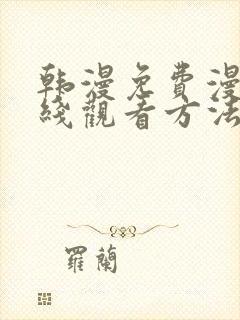 韩漫免費漫
綫觀看方法
羅蘭